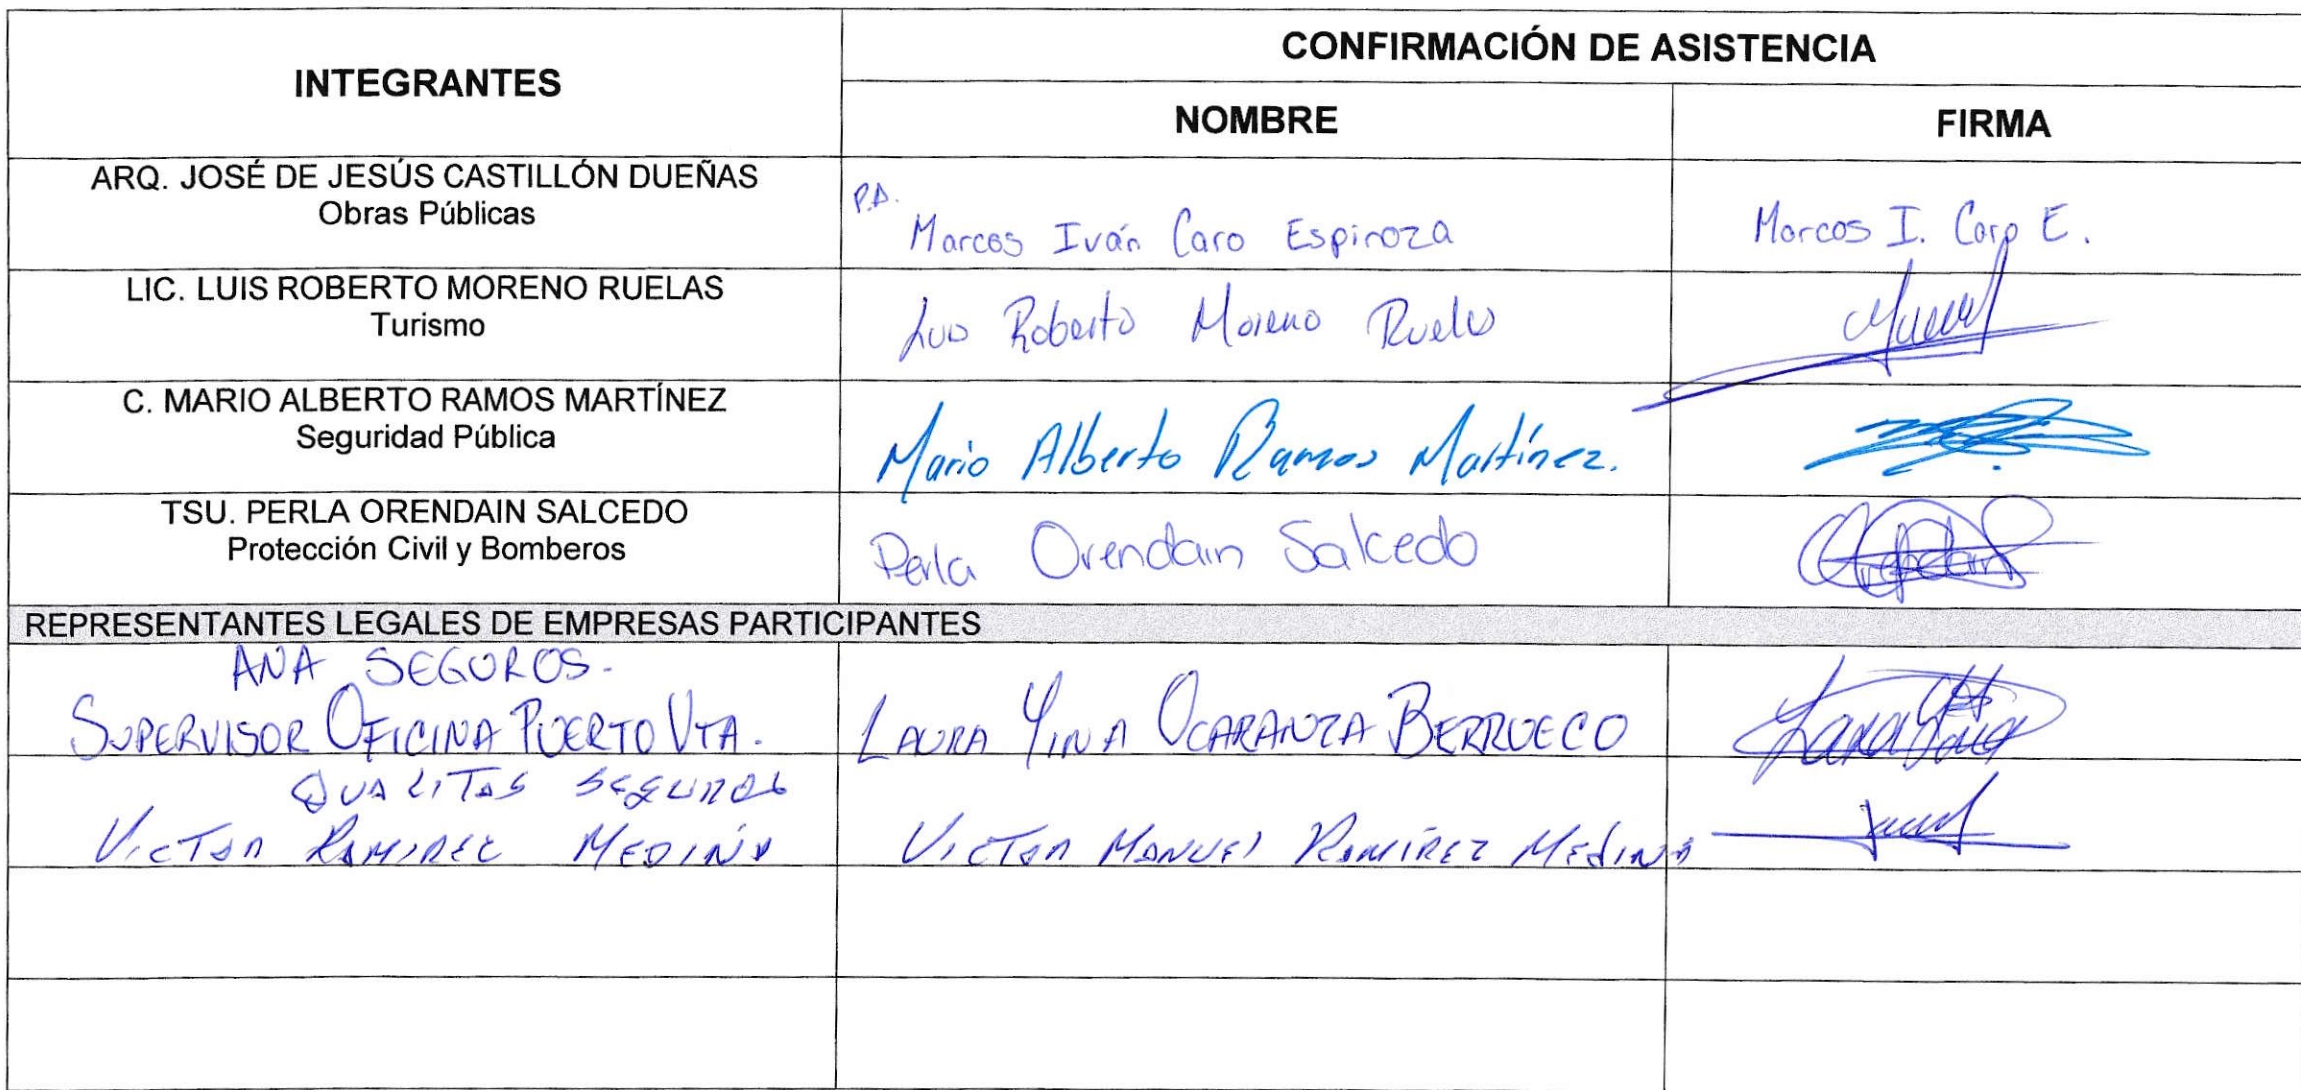 INTEGRANTES
CONFIRMACIÓN DE ASISTENCIA
NOMBRE
FIRMA
ARQ. JOSÉ DE JESÚS CASTILLÓN DUEÑAS
Obras Públicas
P.A.
Marcos Iván Caro Espinoza
Marcos I. Caro E.
LIC. LUIS ROBERTO MORENO RUELAS
Turismo
Luis Roberto Moreno Ruelas
C. MARIO ALBERTO RAMOS MARTÍNEZ
Seguridad Pública
Mario Alberto Ramos Martínez.
TSU. PERLA ORENDAIN SALCEDO
Protección Civil y Bomberos
Perla Orendain Salcedo
REPRESENTANTES LEGALES DE EMPRESAS PARTICIPANTES
ANA SEGUROS.
SUPERVISOR OFICINA PUERTO VTA.
LAURA YINA OCARANZA BERRUECO
QUALITAS SEGUROS
VICTOR RAMIREZ MEDINA
VICTOR MANUEL RAMÍREZ MEDINA